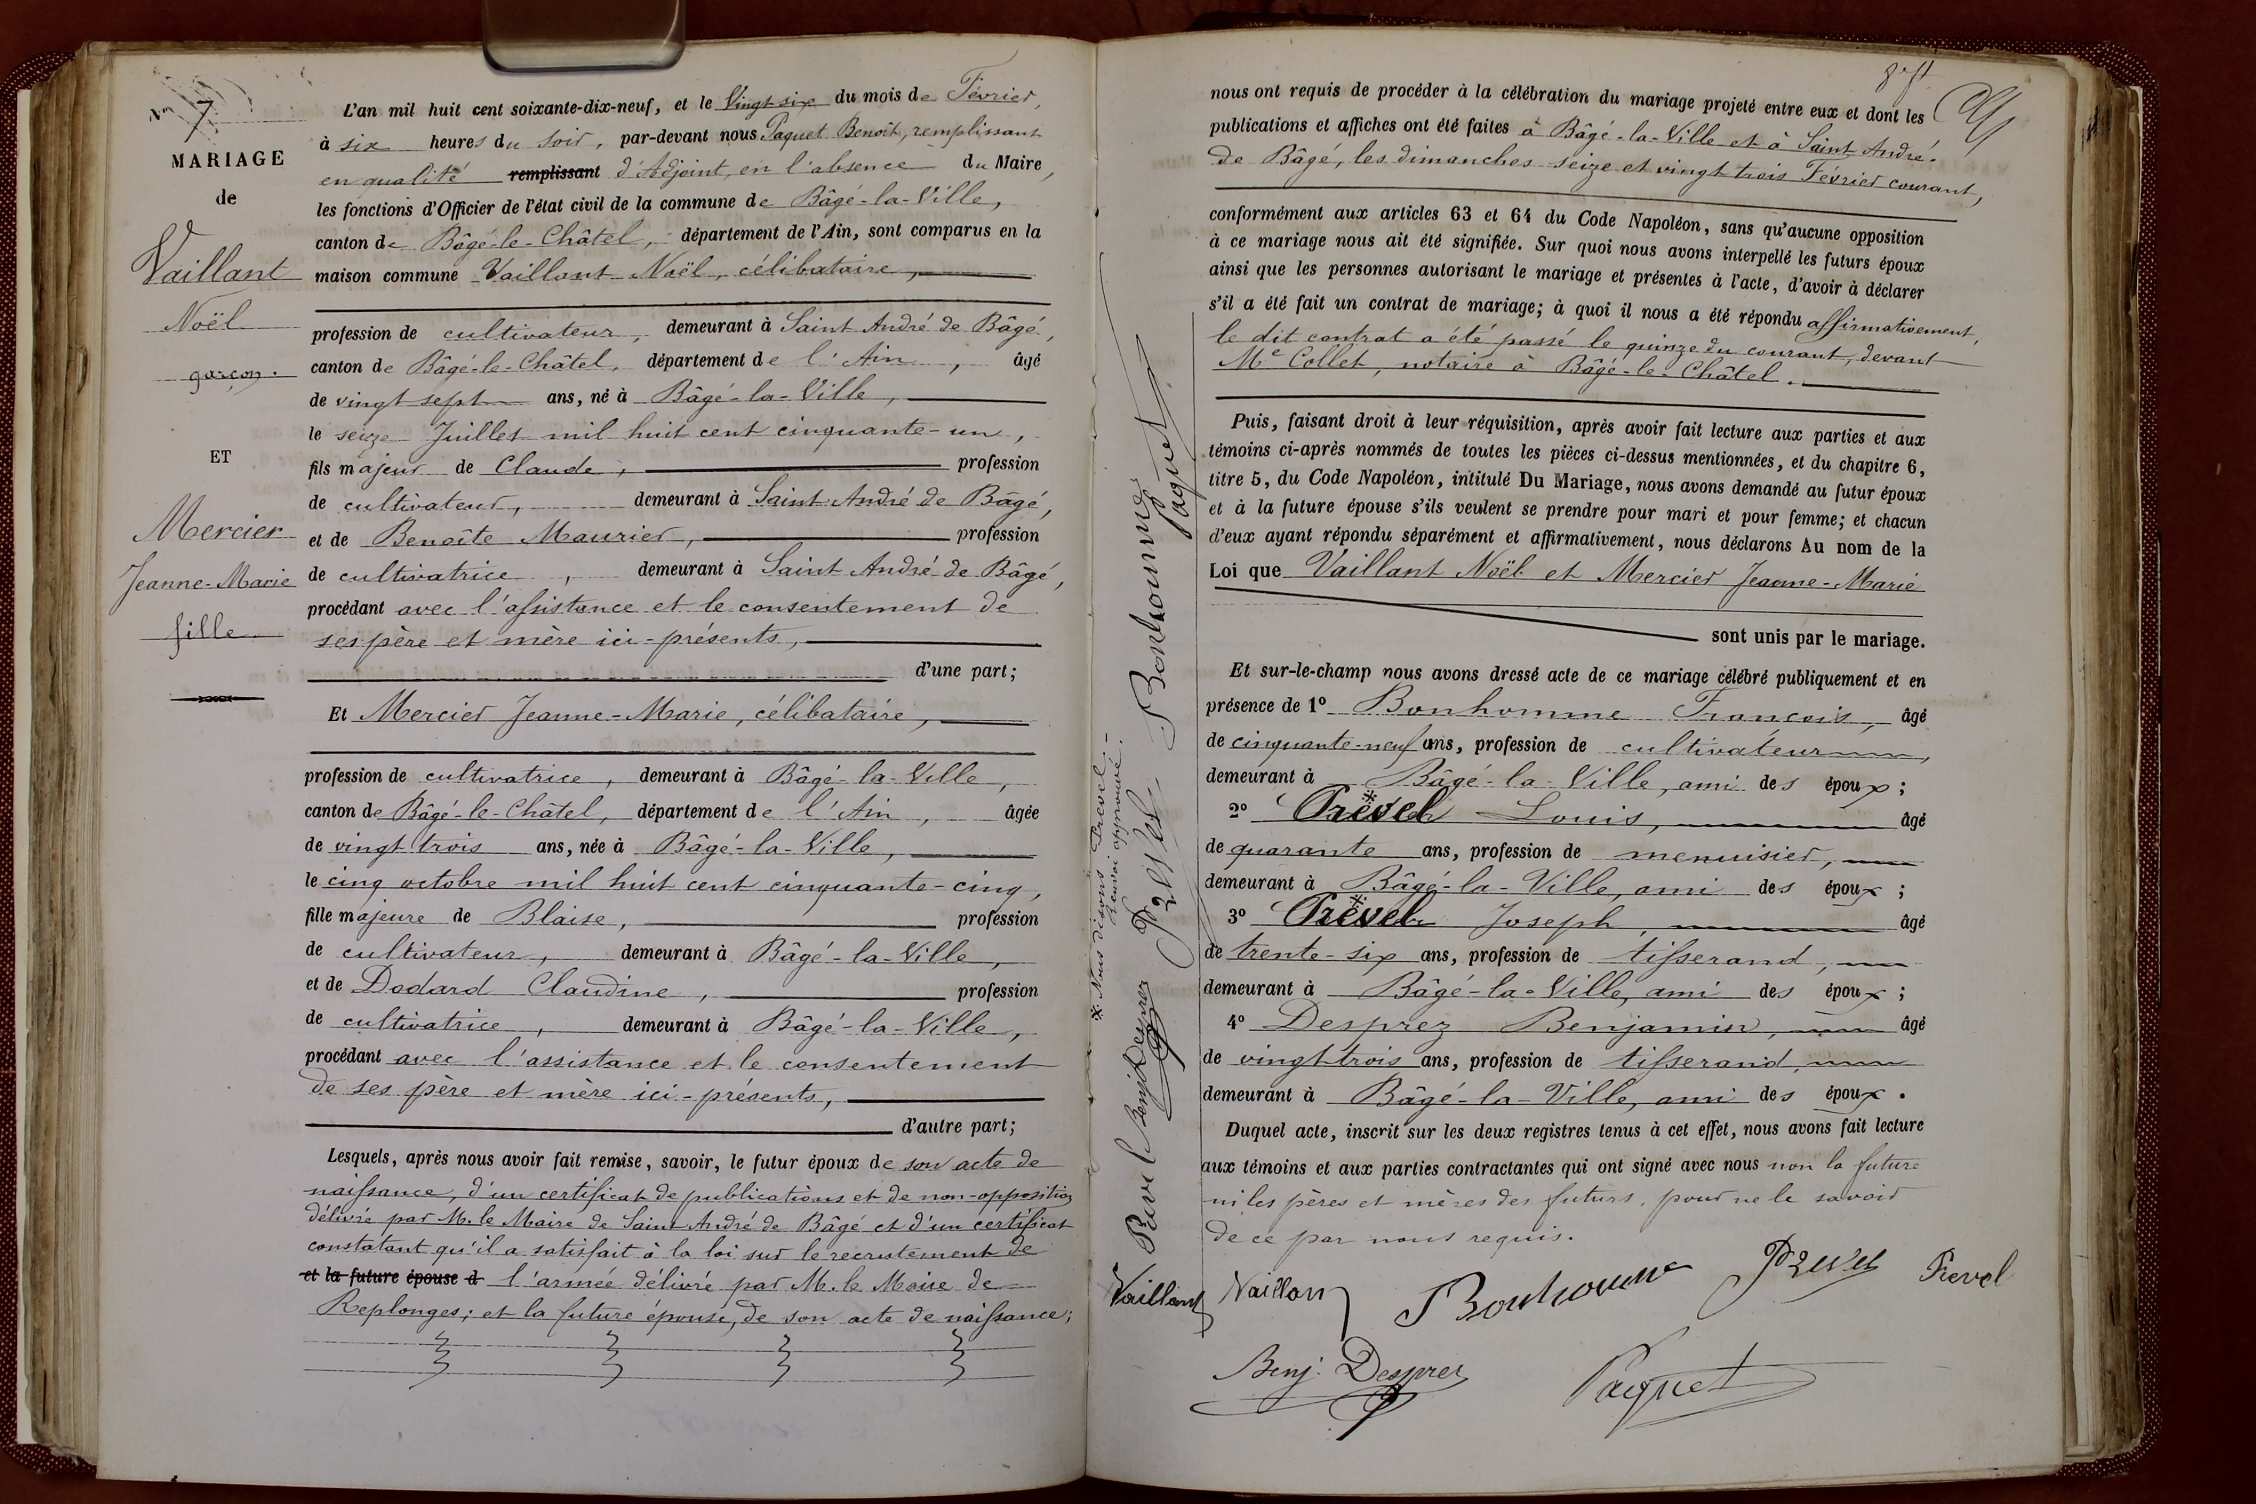 No 7
MARIAGE
de
Vaillant
Noël
garçon.
ET
Mercier
Jeanne-Marie
fille
L'an mil huit cent soixante-dix-neuf, et le Vingt six du mois de Février,
à six heures du soir, par-devant nous Paquet Benoît, remplissant
en qualité remplissant d'Adjoint, en l'absence du Maire,
les fonctions d'Officier de l'état civil de la commune de Bâgé-la-Ville,
canton de Bâgé-le-Châtel, département de l'Ain, sont comparus en la
maison commune Vaillant Noël, célibataire,
profession de cultivateur, demeurant à Saint André de Bâgé,
canton de Bâgé-le-Châtel, département de l'Ain, âgé
de vingt sept ans, né à Bâgé-la-Ville,
le seize Juillet mil huit cent cinquante-un,
fils majeur de Claude, profession
de cultivateur, demeurant à Saint André de Bâgé,
et de Benoîte Maurier, profession
de cultivatrice, demeurant à Saint André de Bâgé,
procédant avec l'assistance et le consentement de
ses père et mère ici-présents,
d'une part;
Et Mercier Jeanne-Marie, célibataire,
profession de cultivatrice, demeurant à Bâgé-la-Ville,
canton de Bâgé-le-Châtel, département de l'Ain, âgée
de vingt trois ans, née à Bâgé-la-Ville,
le cinq octobre mil huit cent cinquante-cinq,
fille majeure de Blaise, profession
de cultivateur, demeurant à Bâgé-la-Ville,
et de Dodard Claudine, profession
de cultivatrice, demeurant à Bâgé-la-Ville,
procédant avec l'assistance et le consentement
de ses père et mère ici-présents,
d'autre part;
Lesquels, après nous avoir fait remise, savoir, le futur époux de son acte de
naissance, d'un certificat de publications et de non-opposition
délivré par M. le Maire de Saint André de Bâgé et d'un certificat
constatant qu'il a satisfait à la loi sur le recrutement de
et la future épouse d l'armée délivré par M. le Maire de
Replonges; et la future épouse, de son acte de naissance;
nous ont requis de procéder à la célébration du mariage projeté entre eux et dont les
publications et affiches ont été faites à Bâgé-la-Ville et à Saint André-
de Bâgé, les dimanches seize et vingt trois Février courant,
conformément aux articles 63 et 64 du Code Napoléon, sans qu'aucune opposition
à ce mariage nous ait été signifiée. Sur quoi nous avons interpellé les futurs époux
ainsi que les personnes autorisant le mariage et présentes à l'acte, d'avoir à déclarer
s'il a été fait un contrat de mariage; à quoi il nous a été répondu affirmativement,
le dit contrat a été passé le quinze du courant, devant
Me Collet, notaire à Bâgé-le-Châtel.
Puis, faisant droit à leur réquisition, après avoir fait lecture aux parties et aux
témoins ci-après nommés de toutes les pièces ci-dessus mentionnées, et du chapitre 6,
titre 5, du Code Napoléon, intitulé Du Mariage, nous avons demandé au futur époux
et à la future épouse s'ils veulent se prendre pour mari et pour femme; et chacun
d'eux ayant répondu séparément et affirmativement, nous déclarons Au nom de la
Loi que Vaillant Noël et Mercier Jeanne-Marie
sont unis par le mariage.
Et sur-le-champ nous avons dressé acte de ce mariage célébré publiquement et en
présence de 1º Bonhomme François, âgé
de cinquante-neuf ans, profession de cultivateur,
demeurant à Bâgé-la-Ville, ami des époux;
2º Prevel Louis, âgé
de quarante ans, profession de menuisier,
demeurant à Bâgé-la-Ville, ami des époux;
3º Prevel Joseph, âgé
de trente-six ans, profession de tisserand,
demeurant à Bâgé-la-Ville, ami des époux;
4º Desprez Benjamin, âgé
de vingt-trois ans, profession de tisserand,
demeurant à Bâgé-la-Ville, ami des époux.
Duquel acte, inscrit sur les deux registres tenus à cet effet, nous avons fait lecture
aux témoins et aux parties contractantes qui ont signé avec nous non la future
ni les pères et mères des futurs, pour ne le savoir
de ce par nous requis.
Vaillant Bonhomme Prevel Prevel
Benj. Desprez Paquet
* Nous disons Prevel.-
Renvoi approuvé.
Vaillant Prevel Benj. Desprez Prevel Bonhomme
Paquet